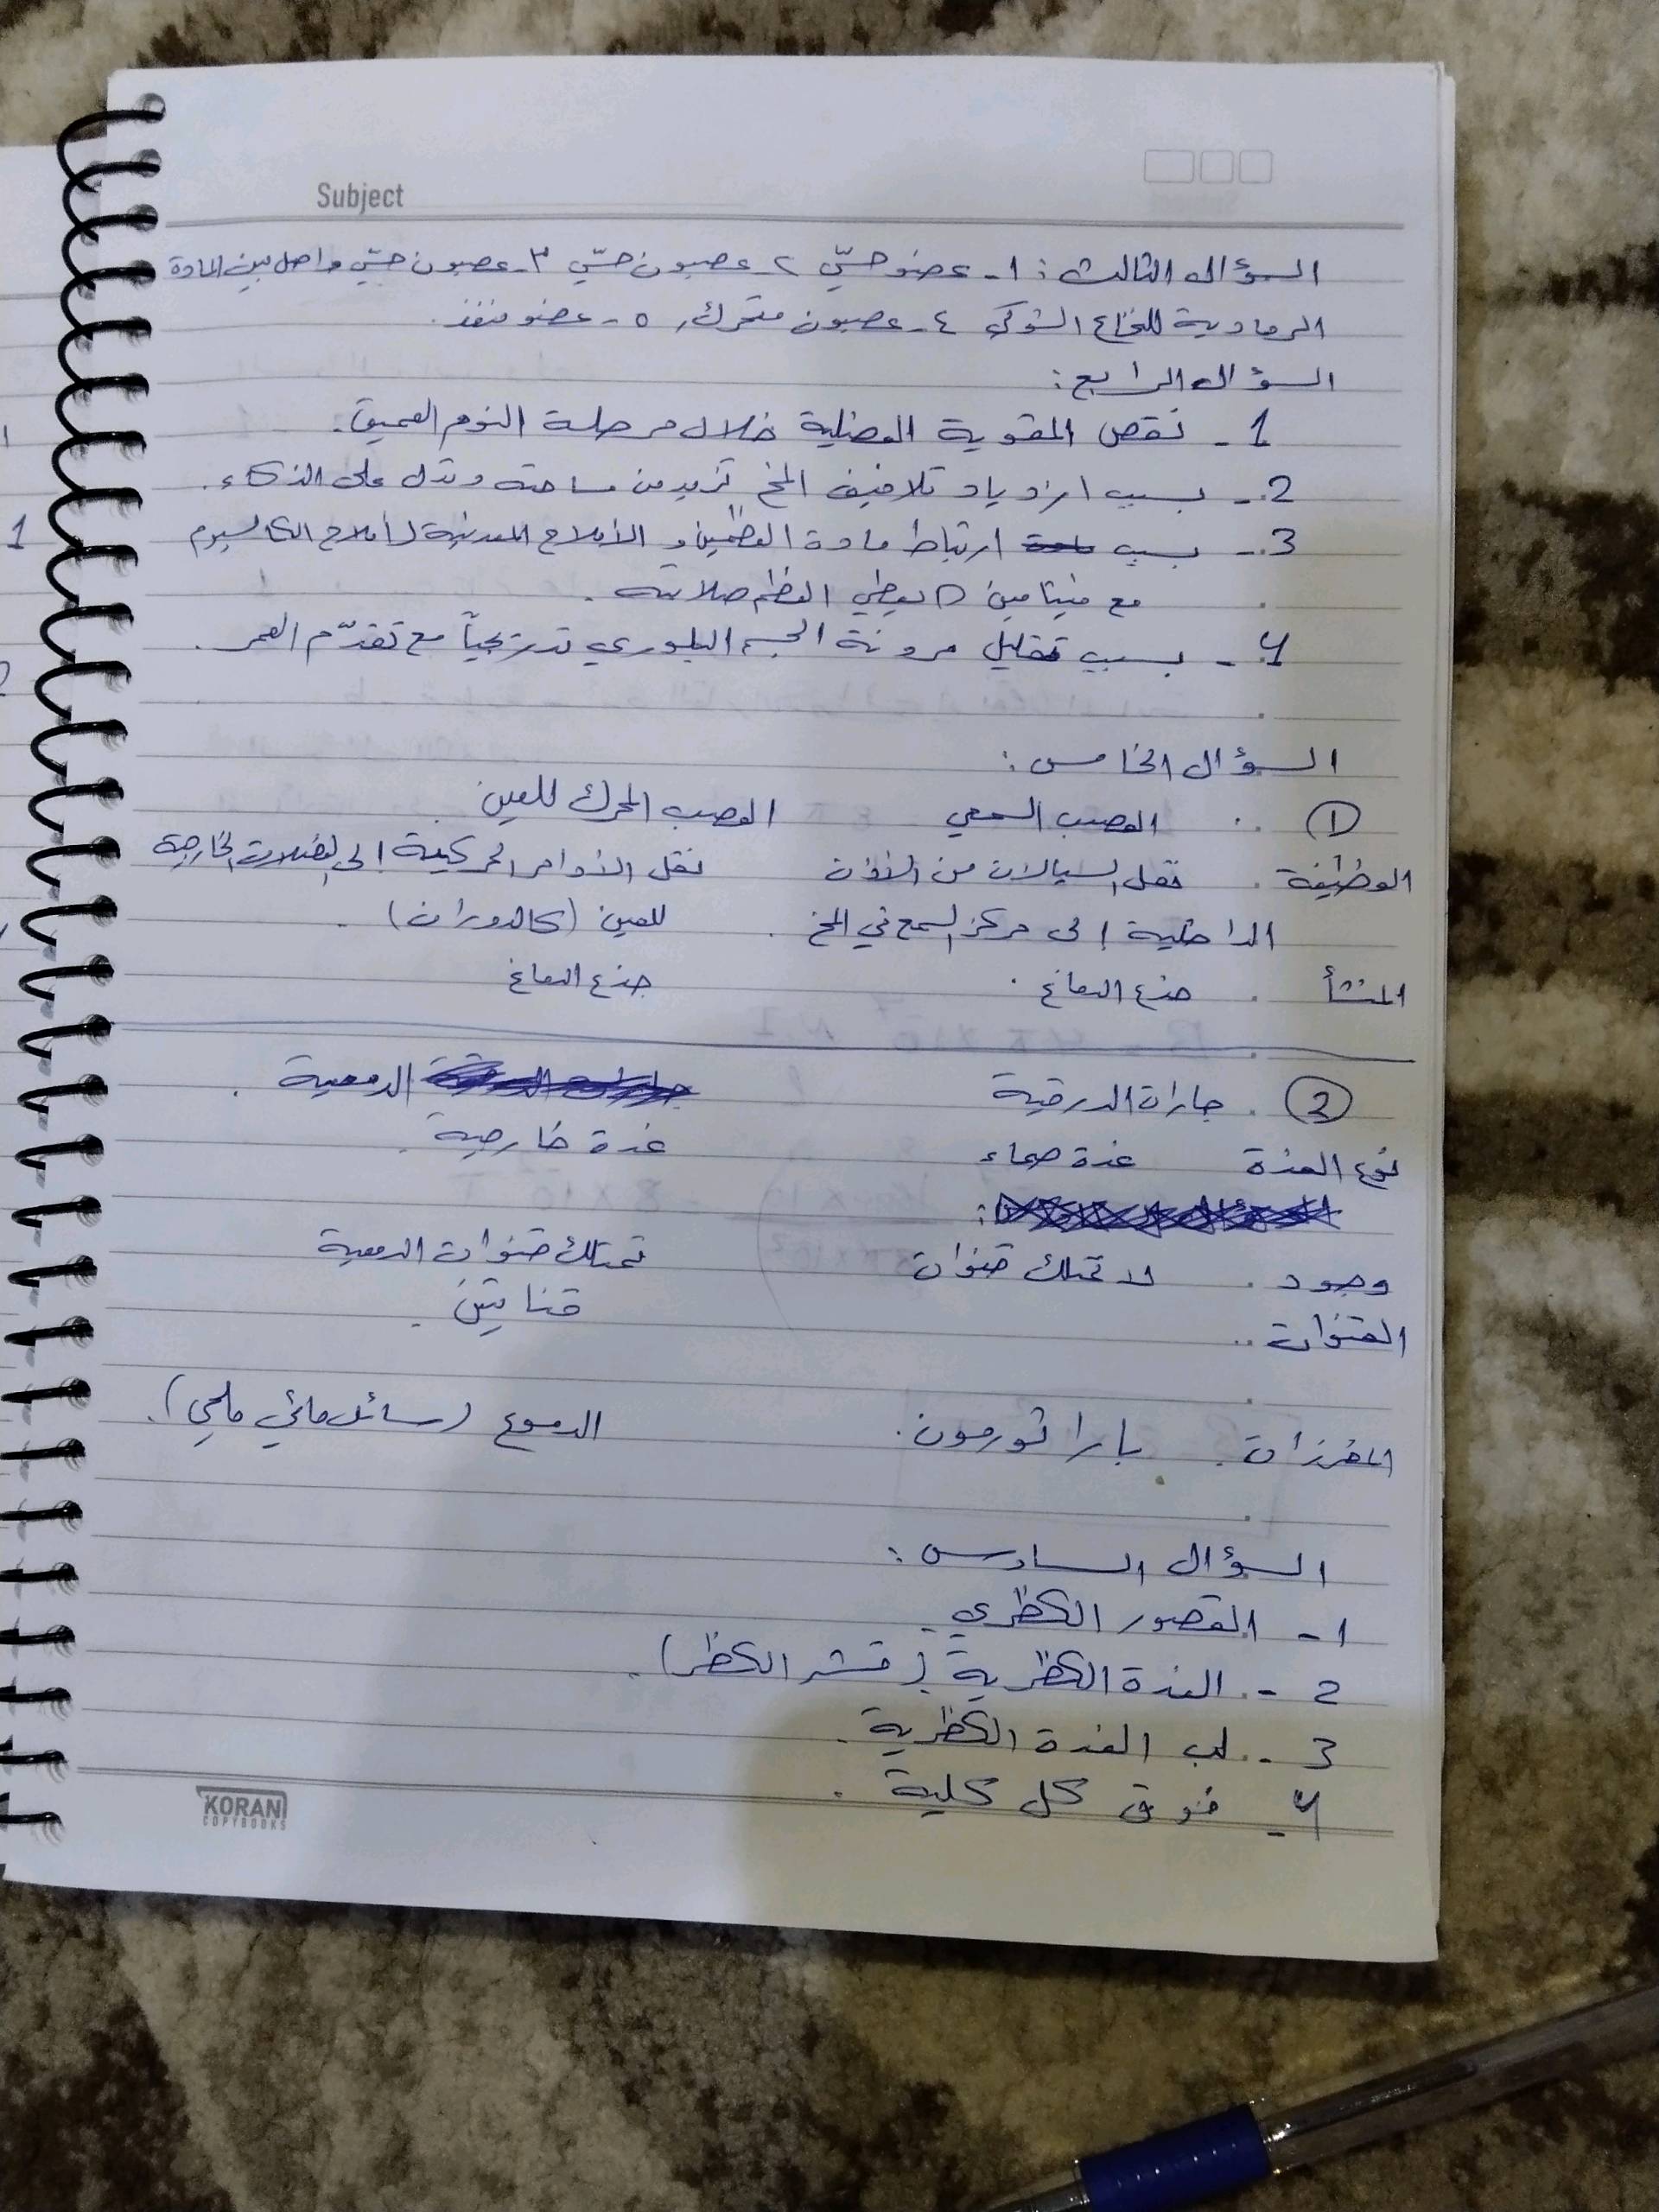 Subject
السؤال الثالث: ١- عضو حسّي ٢- عصبون حسّي ٣- عصبون حسّي واصل بين المادة
الرمادية للنخاع الشوكي ٤- عصبون متحرك, ٥- عضو منفذ.
السؤال الرابع:
1- نقص المقوية العضلية خلال مرحلة النوم العميق.
2- بسبب ازدياد تلافيف المخ تزيد من مساحته وتدل على الذكاء.
3- بسبب ارتباط مادة العظمين و الأملاح المعدنية لأملاح الكالسيوم
مع فيتامين D يعطي العظم صلابته.
4- بسبب تقليل مرونة الجسم البلوري تدريجياً مع تقدّم العمر.
السؤال الخامس:
① العصب السمعي العصب المحرك للعين
الوظيفة نقل السيالات من الأذن نقل الأوامر الحركية إلى العضلات الخارجية
الداخلية إلى مركز السمع في المخ. للعين (كالدوران).
المنشأ جذع الدماغ جذع الدماغ
② جارات الدرقية الدمعية.
نوع الغدة غدة صماء غدة خارجية.
وجود لا تمتلك قنوات تمتلك قنوات الدمعية
القنوات قناتين.
المفرزات باراثورمون. الدموع (سائل مائي ملحي).
السؤال السادس:
1- القصور الكظري.
2- الغدة الكظرية (قشر الكظر).
3- لب الغدة الكظرية.
4- فوق كل كلية.
KORAN
COPYBOOKS